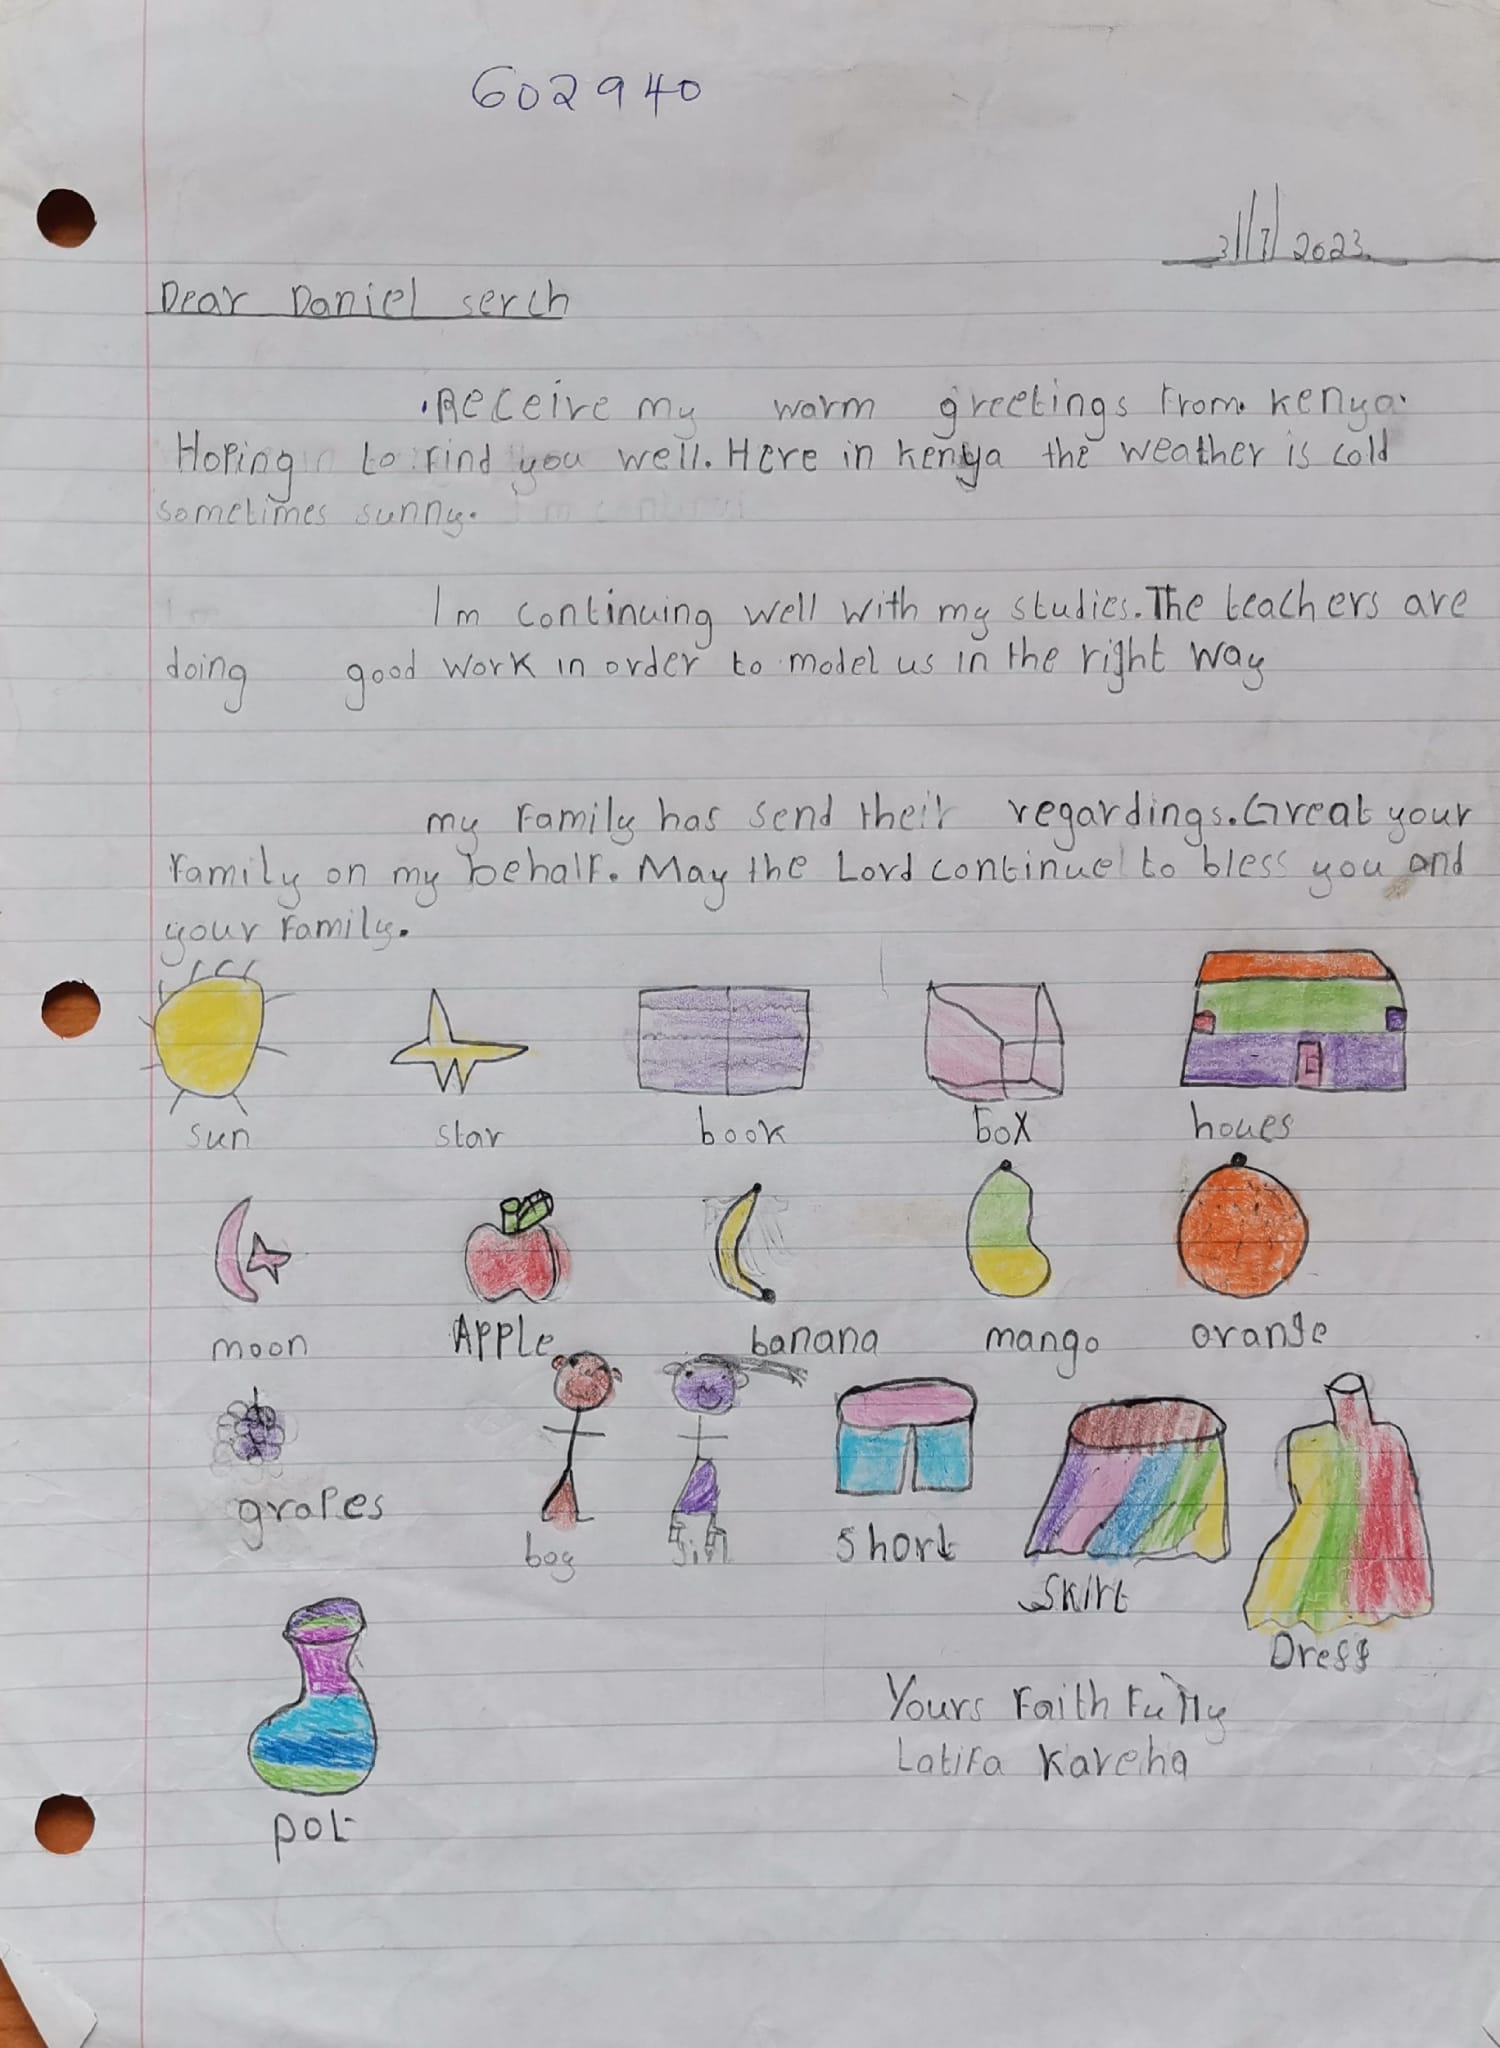 602940
31/7/2023.
Dear Daniel serch
Receive my warm greetings from Kenya.
Hoping to find you well. Here in Kenya the weather is cold
sometimes sunny.
Im continuing well with my studies. The teachers are
doing good work in order to model us in the right way
my family has send their regardings. Great your
family on my behalf. May the Lord continue to bless you and
your family.
sun star book box houes
moon Apple banana mango orange
grapes boy short skirt Dress
pot
Yours Faith Fully
Latifa Kaveha